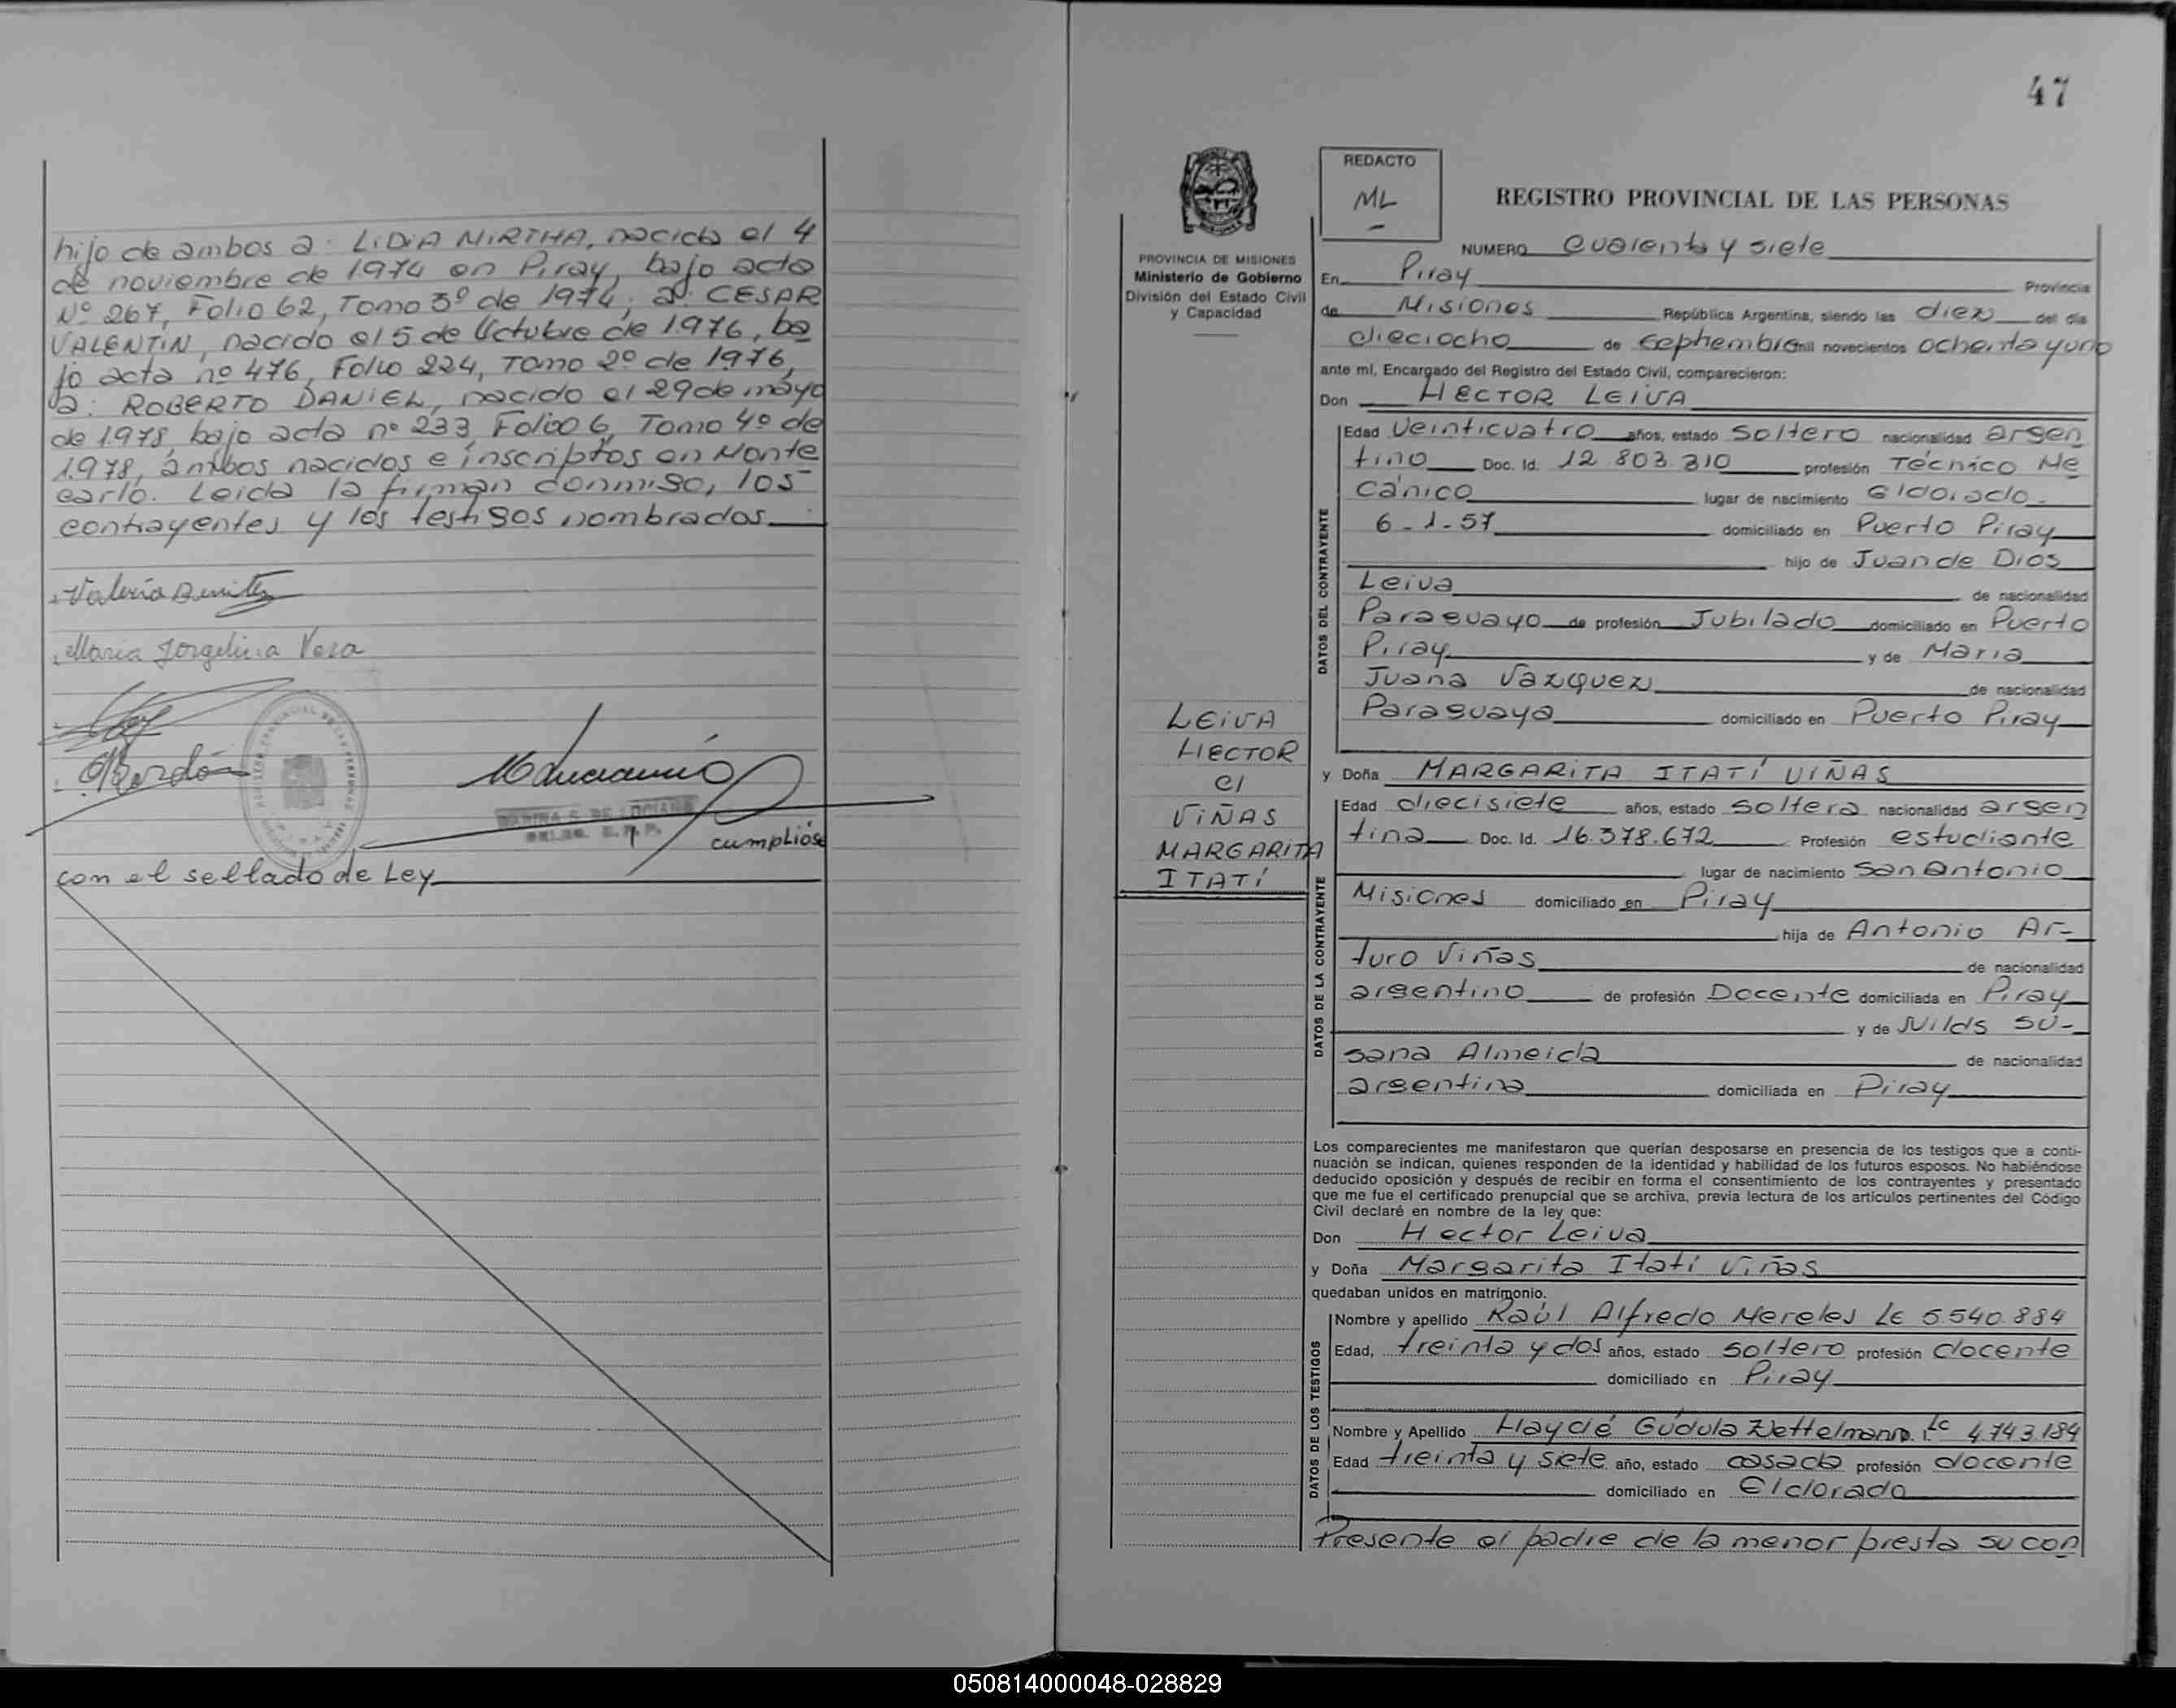 hijo de ambos a: LIDIA MIRTHA, nacida el 4
de noviembre de 1974 en Piray, bajo acta
Nº 267, Folio 62, Tomo 3º de 1974; a: CESAR
VALENTIN, nacido el 5 de Octubre de 1976, ba
jo acta nº 476, Folio 224, Tomo 2º de 1976,
a: ROBERTO DANIEL, nacido el 29 de mayo
de 1978 bajo acta nº 233 Folio 6, Tomo 4º de
1.978, ambos nacidos e inscriptos en Monte
carlo. Leida la firman conmigo, los
contrayentes y los testigos nombrados.
Valerio Benitez
Maria Jorgelina Vera
cumplióse
con el sellado de Ley
47
REDACTO
ML
REGISTRO PROVINCIAL DE LAS PERSONAS
PROVINCIA DE MISIONES
Ministerio de Gobierno
División del Estado Civil
y Capacidad
NUMERO cuarenta y siete
En Piray Provincia
de Misiones República Argentina, siendo las diez del día
dieciocho de septiembre mil novecientos ochenta y uno
ante mí, Encargado del Registro del Estado Civil, comparecieron:
Don HECTOR LEIVA
DATOS DEL CONTRAYENTE
Edad Veinticuatro años, estado soltero nacionalidad argen
tino Doc. Id. 12.803.310 profesión Técnico Me
cánico lugar de nacimiento Eldorado-
6-1-57 domiciliado en Puerto Piray
hijo de Juan de Dios
Leiva de nacionalidad
Paraguayo de profesión Jubilado domiciliado en Puerto
Piray y de Maria
Juana Vazquez de nacionalidad
Paraguaya domiciliado en Puerto Piray
LEIVA
HECTOR
c/
VIÑAS
MARGARITA
ITATÍ
y Doña MARGARITA ITATÍ VIÑAS
DATOS DE LA CONTRAYENTE
Edad diecisiete años, estado soltera nacionalidad argen
tina Doc. Id. 16.378.672 Profesión estudiante
lugar de nacimiento San Antonio
Misiones domiciliado en Piray
hija de Antonio Ar-
turo Viñas de nacionalidad
argentino de profesión Docente domiciliada en Piray
y de Nilda Su-
sana Almeida de nacionalidad
argentina domiciliada en Piray
Los comparecientes me manifestaron que querían desposarse en presencia de los testigos que a conti-
nuación se indican, quienes responden de la identidad y habilidad de los futuros esposos. No habiéndose
deducido oposición y después de recibir en forma el consentimiento de los contrayentes y presentado
que me fue el certificado prenupcial que se archiva, previa lectura de los artículos pertinentes del Código
Civil declaré en nombre de la ley que:
Don Hector Leiva
y Doña Margarita Itatí Viñas
quedaban unidos en matrimonio.
DATOS DE LOS TESTIGOS
Nombre y apellido Raúl Alfredo Mereles LE 5.540.884
Edad, treinta y dos años, estado soltero profesión docente
domiciliado en Piray
Nombre y Apellido Haydé Gúdula Zettelmann. LC 4.743.184
Edad treinta y siete año, estado casada profesión docente
domiciliado en Eldorado
Presente el padre de la menor presta su con
050814000048-028829